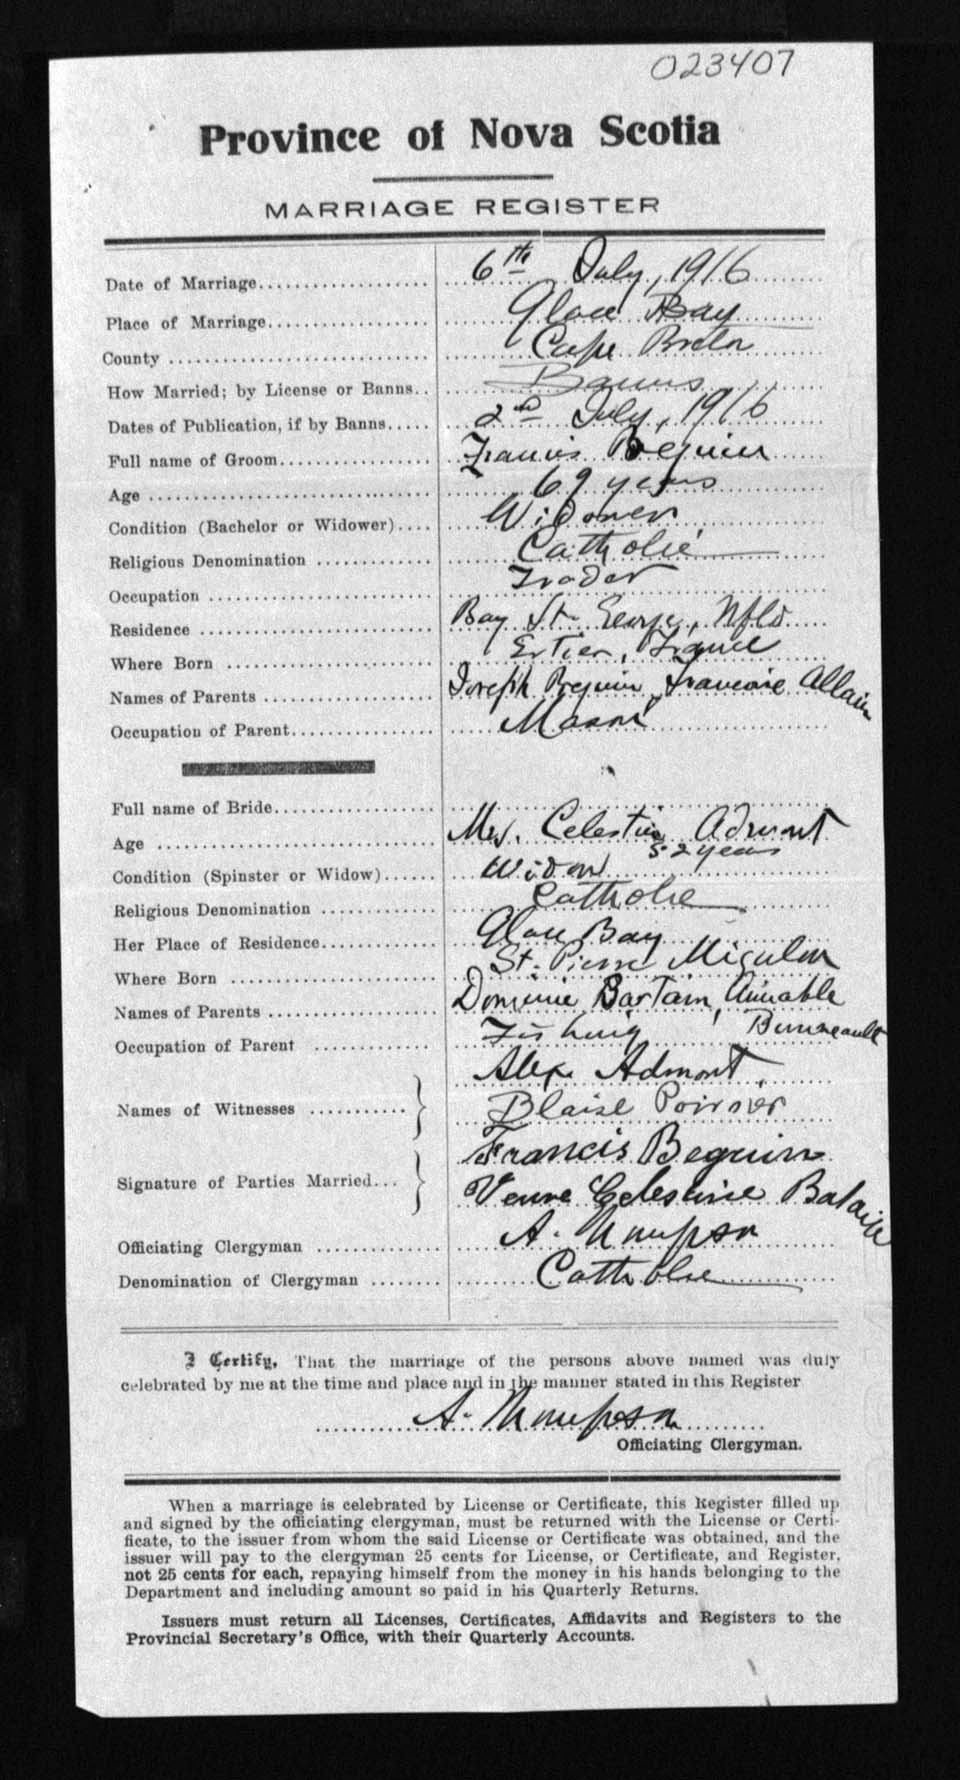 023407
Province of Nova Scotia
MARRIAGE REGISTER
Date of Marriage 6th July, 1916
Place of Marriage Glace Bay
County Cape Breton
How Married; by License or Banns Banns
Dates of Publication, if by Banns 2nd July, 1916
Full name of Groom Francis Beguin
Age 69 years
Condition (Bachelor or Widower) Widower
Religious Denomination Catholic
Occupation Trader
Residence Bay St George, Nfld
Where Born France
Names of Parents Joseph Beguin, Francoise Allain
Occupation of Parent Mason
Full name of Bride Mrs. Celestine Admont
Age 52 years
Condition (Spinster or Widow) Widow
Religious Denomination Catholic
Her Place of Residence Glace Bay
Where Born St. Pierre Miquelon
Names of Parents Dominic Bartain, Aimable
Occupation of Parent Fishing
Names of Witnesses Alex. Admont,
Blaise Poirier
Signature of Parties Married Francis Beguin
Veuve Celestine
Officiating Clergyman A. Thompson
Denomination of Clergyman Catholic
I Certify, That the marriage of the persons above named was duly
celebrated by me at the time and place and in the manner stated in this Register
A. Thompson
Officiating Clergyman.
When a marriage is celebrated by License or Certificate, this Register filled up
and signed by the officiating clergyman, must be returned with the License or Certi-
ficate, to the issuer from whom the said License or Certificate was obtained, and the
issuer will pay to the clergyman 25 cents for License, or Certificate, and Register,
not 25 cents for each, repaying himself from the money in his hands belonging to the
Department and including amount so paid in his Quarterly Returns.
Issuers must return all Licenses, Certificates, Affidavits and Registers to the
Provincial Secretary's Office, with their Quarterly Accounts.